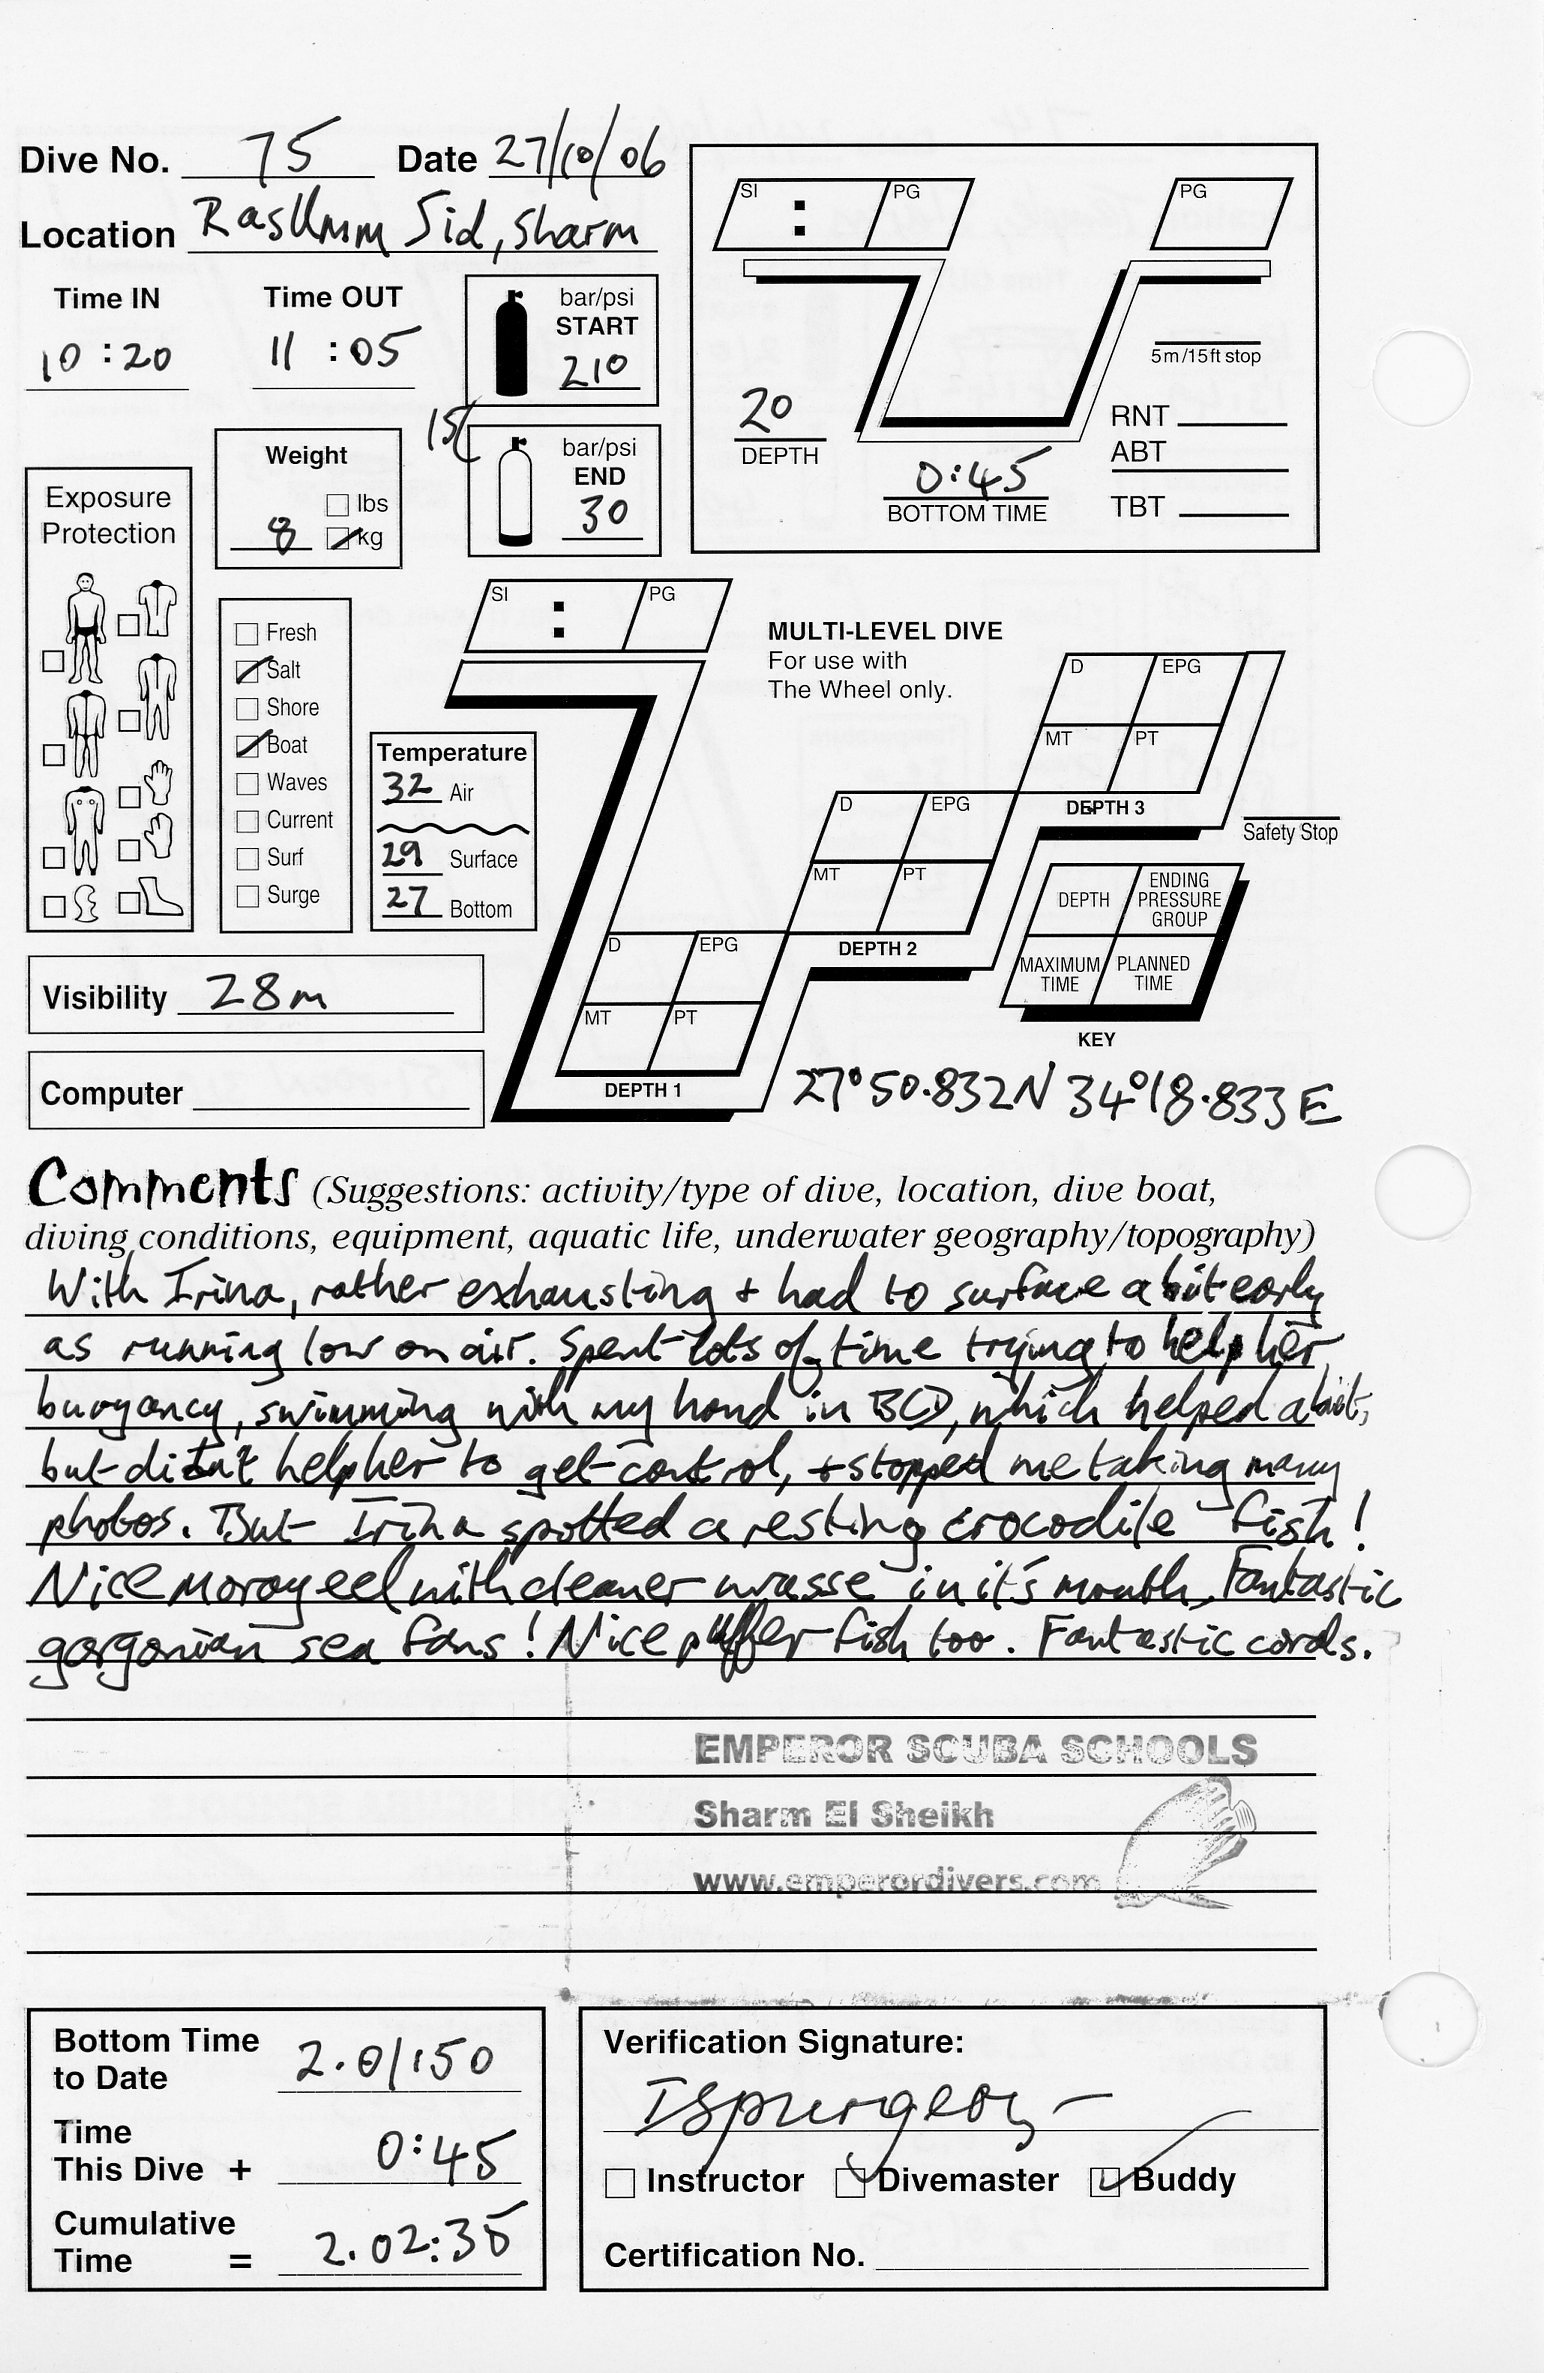 Dive No. 75 Date 27/10/06
Location Ras Umm Sid, Sharm
Time IN Time OUT
10:20 11:05
bar/psi
START
210
15L
bar/psi
END
30
Weight
lbs
8 kg
Exposure
Protection
Fresh
Salt
Shore
Boat
Waves
Current
Surf
Surge
Temperature
32 Air
29 Surface
27 Bottom
Visibility 28m
Computer
SI : PG
PG
5m/15ft stop
20
DEPTH
0:45
BOTTOM TIME
RNT
ABT
TBT
SI : PG
MULTI-LEVEL DIVE
For use with
The Wheel only.
D EPG
MT PT
DEPTH 3
Safety Stop
D EPG
MT PT
DEPTH 2
D EPG
MT PT
DEPTH 1
DEPTH
ENDING
PRESSURE
GROUP
MAXIMUM
TIME
PLANNED
TIME
KEY
27°50.832N 34°18.833E
Comments (Suggestions: activity/type of dive, location, dive boat,
diving conditions, equipment, aquatic life, underwater geography/topography)
With Irina, rather exhausting + had to surface a bit early
as running low on air. Spent lots of time trying to help her
buoyancy, swimming with my hand in BCD, which helped a bit,
but didn't help her to get control, + stopped me taking many
photos. But Irina spotted a resting crocodile fish!
Nice moray eel with cleaner wrasse in it's mouth. Fantastic
gorgonian sea fans! Nice puffer fish too. Fantastic corals.
EMPEROR SCUBA SCHOOLS
Sharm El Sheikh
www.emperordivers.com
Bottom Time
to Date 2.01:50
Time
This Dive + 0:45
Cumulative
Time = 2.02:35
Verification Signature:
ISpurgeon
Instructor Divemaster Buddy
Certification No.